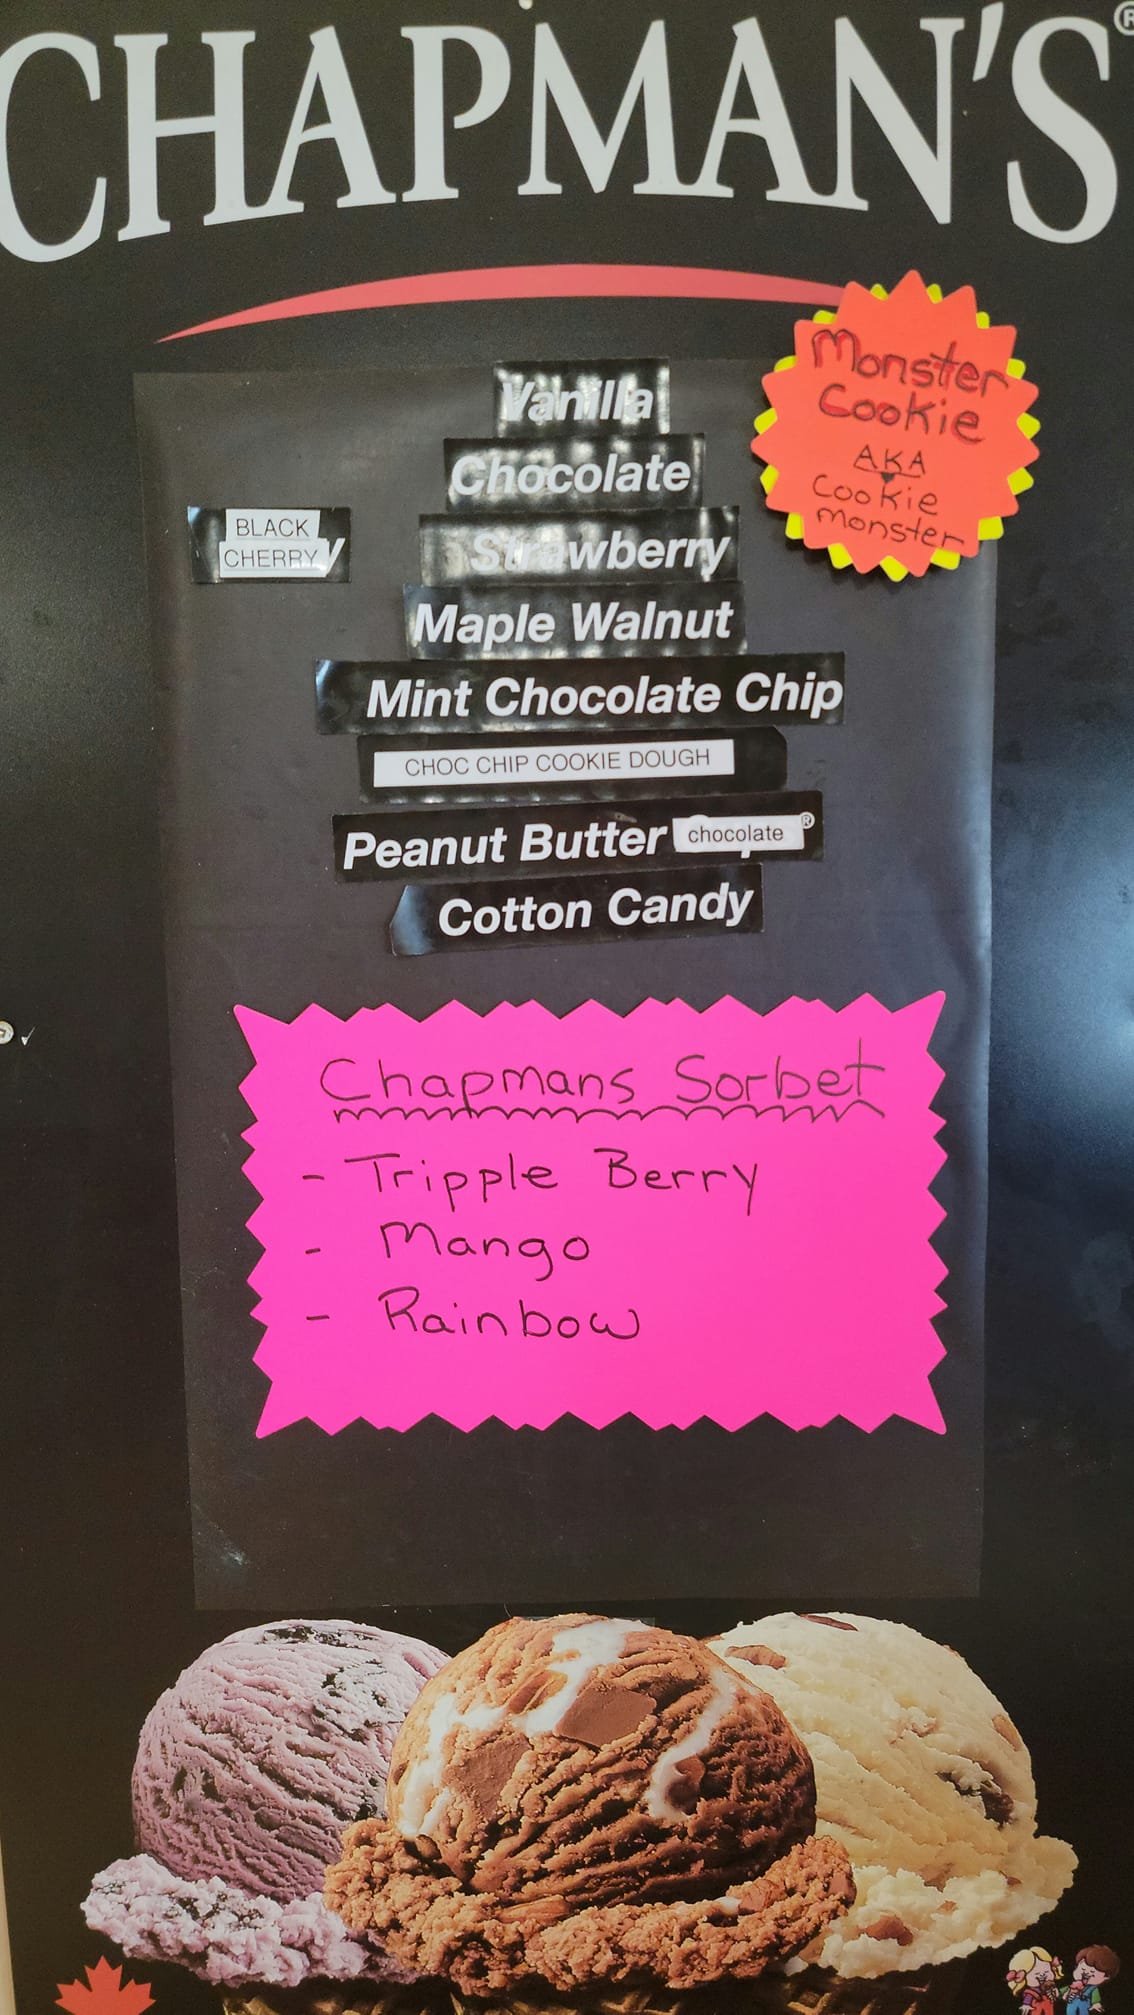 CHAPMAN'S®
Monster
Cookie
AKA
Cookie
monster
Vanilla
Chocolate
BLACK
CHERRY
Strawberry
Maple Walnut
Mint Chocolate Chip
CHOC CHIP COOKIE DOUGH
Peanut Butter chocolate ®
Cotton Candy
Chapmans Sorbet
- Tripple Berry
- Mango
- Rainbow